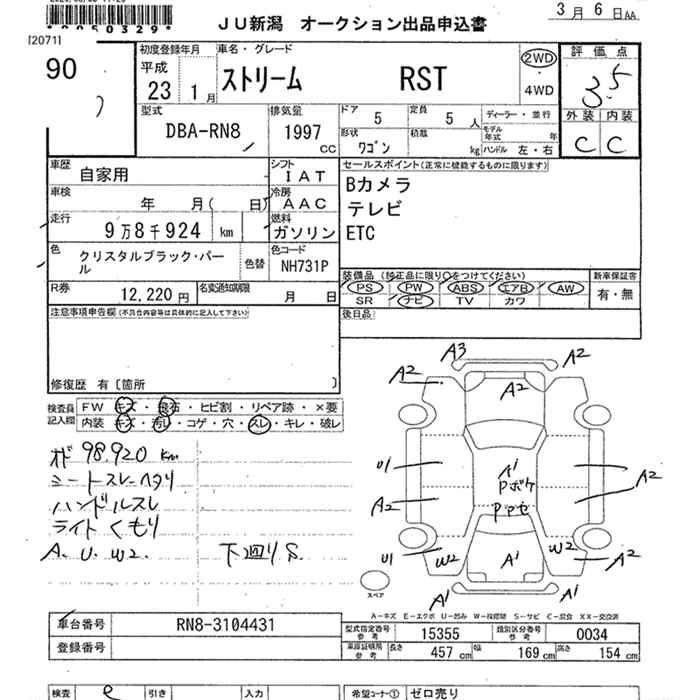 *0050329*
3月 6日AA
JU新潟 オークション出品申込書
[20711]
90
初度登録年月
平成 23 1月
車名・グレード
ストリーム RST
2WD
・
4WD
評価点
3.5
外装 内装
C C
型式
DBA-RN8
排気量
1997 cc
ドア 5
定員 5人
ディーラー・並行
形状
ワゴン
積載 kg
モデル年式 年
ハンドル 左・右
車歴
自家用
シフト
IAT
セールスポイント(正常に機能するものに限ります)
Bカメラ
テレビ
ETC
車検
年 月( 日)
冷房
AAC
走行
9万8千924 km
燃料
ガソリン
色
クリスタルブラック・パール
色替
色コード
NH731P
装備品 (純正品に限り○をつけてください)
PS PW ABS エアB AW
SR ナビ TV カワ
新車保証書
有・無
R券
12,220円
名変通知期限
月 日
後日品
注意事項申告欄(不具合内容等は具体的に記入して下さい)
修復歴 有〔箇所 〕
検査員記入欄
FW キズ・飛石・ヒビ割・リペア跡・×要
内装 キズ・汚レ・コゲ・穴・スレ・キレ・破レ
オド 98.920 km
シートスレ・ヘタリ
ハンドルスレ
ライトくもり
A. U. W2. 下廻りS
A3
A2
A2
A2
U1
A1
Pボケ
A2
A2
U1
W2
A1
W2
A2
A1
A1
スペア
A-キズ E-エクボ U-凹み W-補修跡 S-サビ C-腐食 XX-交換済
車台番号
RN8-3104431
登録番号
型式指定番号
参考
15355
類別区分番号
参考
0034
車庫証明用
参考
長さ 457 cm
幅 169 cm
高さ 154 cm
検査
引き
入力
希望コーナー①
ゼロ売り